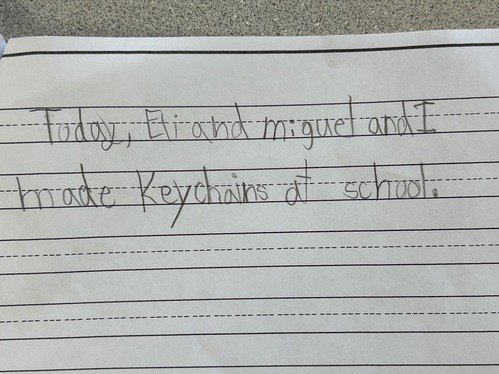 Today, Eli and miguel and I
made Keychains at school.